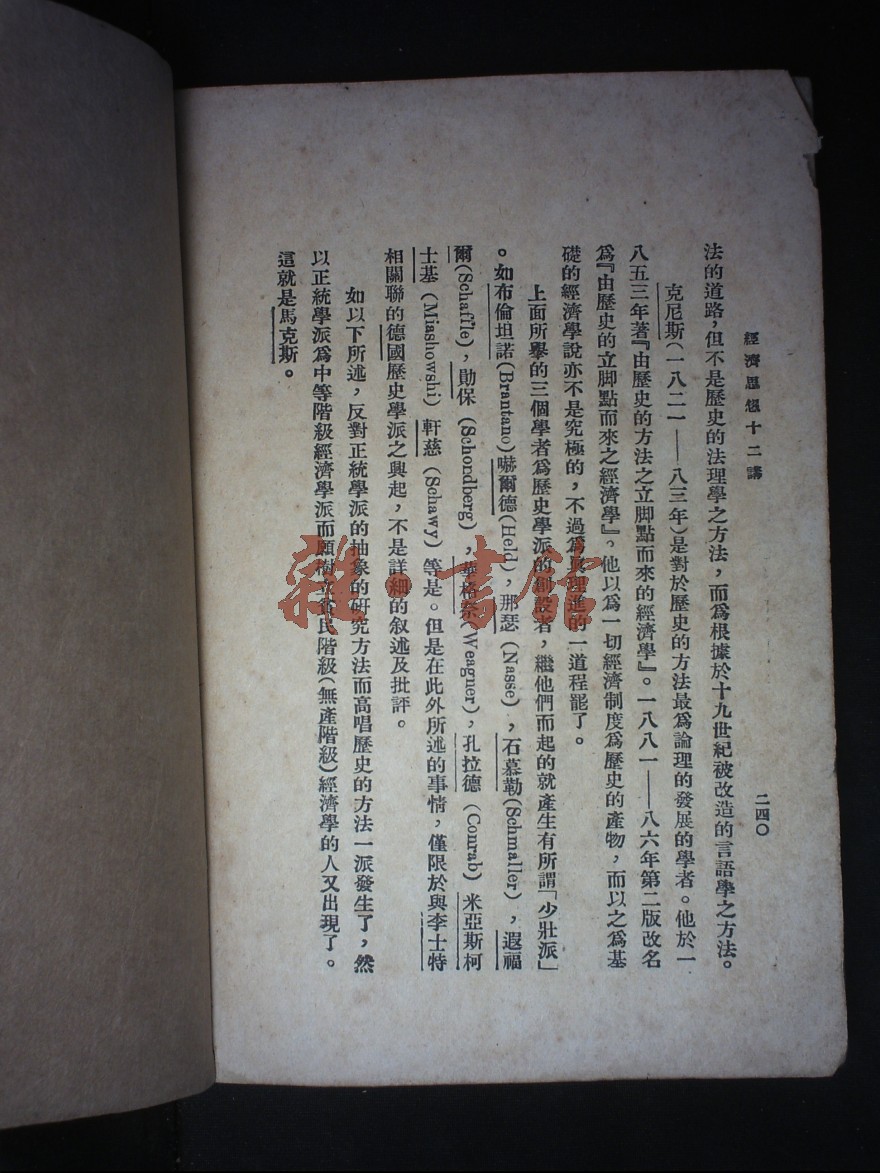 經濟思想十二講
二四〇
法的道路，但不是歷史的法理學之方法，而爲根據於十九世紀被改造的言語學之方法。
克尼斯（一八二一——八三年）是對於歷史的方法最爲論理的發展的學者。他於一
八五三年著『由歷史的方法之立脚點而來的經濟學』。一八八一——八六年第二版改名
爲『由歷史的立脚點而來之經濟學』。他以爲一切經濟制度爲歷史的產物，而以之爲基
礎的經濟學說亦不是究極的，不過爲眞理進的一道程罷了。
上面所舉的三個學者爲歷史學派的創設者，繼他們而起的就產生有所謂「少壯派」
。如布倫坦諾(Brantano)嚇爾德(Held)，那瑟（Nasse），石慕勒(Schmaller)，遐福
爾(Schaffle)，勛保（Schondberg)，華格奈(Weagner)，孔拉德（Comrab）米亞斯柯
士基（Miashowshi）軒慈（Schawy）等是。但是在此外所述的事情，僅限於與李士特
相關聯的德國歷史學派之興起，不是詳細的叙述及批評。
如以下所述，反對正統學派的抽象的研究方法而高唱歷史的方法一派發生了，然
以正統學派爲中等階級經濟學派而願樹立貧民階級（無產階級）經濟學的人又出現了。
這就是馬克斯。
雜·書館